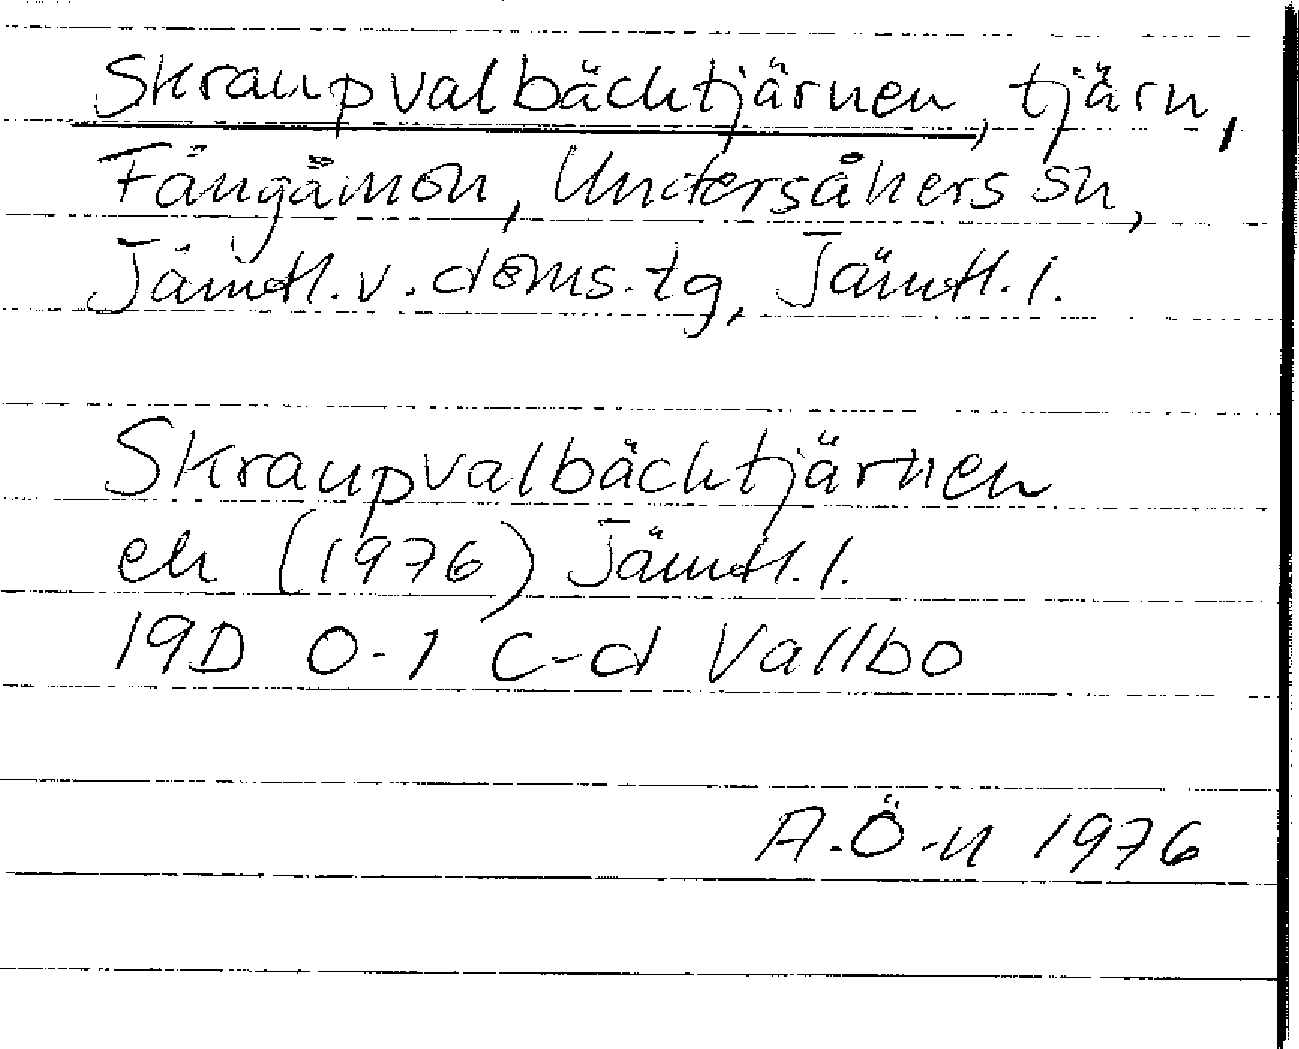 Skraupvalbäcktjärnen, tjärn,
Fångåmon, Undersåkers sn,
Jämtl. v. doms. tg, Jämtl. l.
Skraupvalbäcktjärnen
ek (1976) Jämtl. l.
19D 0-1 c-d Vallbo
A.Ö-n 1976